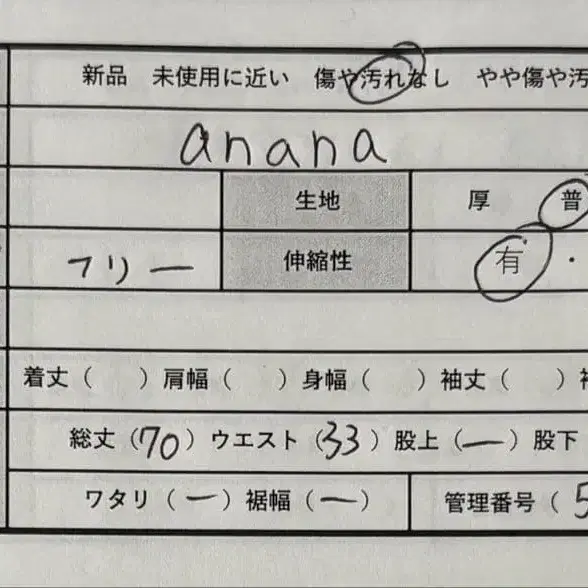 新品 未使用に近い 傷や汚れなし やや傷や汚
anana
生地 厚 普
フリー 伸縮性 有 ・
着丈（ ）肩幅（ ）身幅（ ）袖丈（ ）
総丈（70）ウエスト（33）股上（ー）股下
ワタリ（ー）裾幅（ー） 管理番号（5